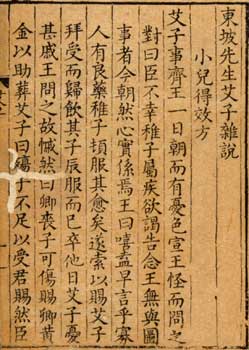 東坡先生艾子雜說
小兒得效方
艾子事齊王一日朝而有憂色宣王怪而問之
對曰臣不幸稚子屬疾欲謁告念王無與圖
事者今朝然心實係焉王曰嘻盍早言乎寡
人有良藥稚子頓服其愈矣遂索以賜艾子
拜受而歸飲其子辰服而巳卒他日艾子憂
甚戚王問之故慽然曰卿喪子可傷賜卿黃
金以助葬艾子曰殤子不足以受君賜然臣